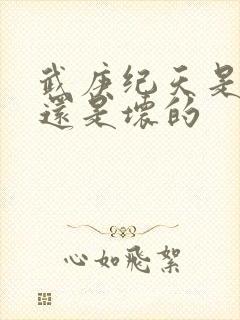 武庚纪天是
還是壞的
心如飛絮